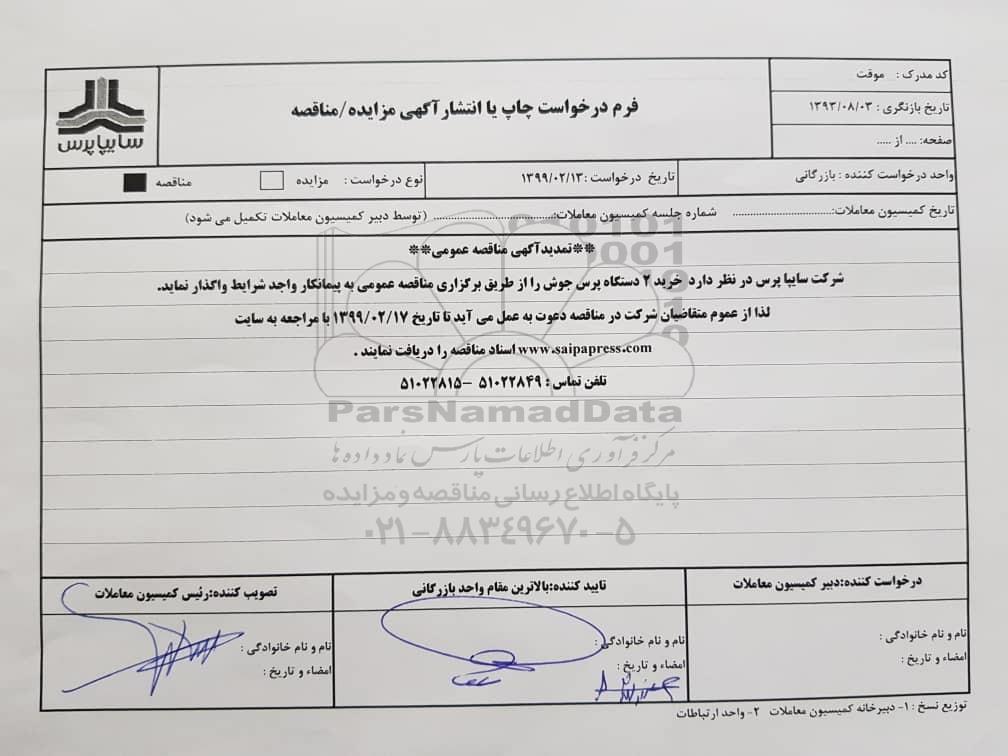 سایپا پرس
فرم درخواست چاپ یا انتشار آگهی مزایده/مناقصه
کد مدرک : موقت
تاریخ بازنگری : ۱۳۹۳/۰۸/۰۳
صفحه: .... از .....
واحد درخواست کننده : بازرگانی
تاریخ درخواست :۱۳۹۹/۰۲/۱۳
نوع درخواست : مزایده مناقصه
تاریخ کمیسیون معاملات:.................................. شماره جلسه کمیسیون معاملات:......................................... (توسط دبیر کمیسیون معاملات تکمیل می شود)
**تمدیدآگهی مناقصه عمومی**
شرکت سایپا پرس در نظر دارد خرید ۲ دستگاه پرس جوش را از طریق برگزاری مناقصه عمومی به پیمانکار واجد شرایط واگذار نماید.
لذا از عموم متقاضیان شرکت در مناقصه دعوت به عمل می آید تا تاریخ ۱۳۹۹/۰۲/۱۷ با مراجعه به سایت
www.saipapress.com اسناد مناقصه را دریافت نمایند .
تلفن تماس : ۵۱۰۲۲۸۴۹ –۵۱۰۲۲۸۱۵
ParsNamadData
مرکز فرآوری اطلاعات پارس نماد داده ها
پایگاه اطلاع رسانی مناقصه و مزایده
۰۲۱-۸۸۳۴۹۶۷۰-۵
درخواست کننده:دبیر کمیسیون معاملات
نام و نام خانوادگی :
امضاء و تاریخ :
تایید کننده:بالاترین مقام واحد بازرگانی
نام و نام خانوادگی :
امضاء و تاریخ :
تصویب کننده:رئیس کمیسیون معاملات
نام و نام خانوادگی :
امضاء و تاریخ :
توزیع نسخ : ۱- دبیرخانه کمیسیون معاملات ۲- واحد ارتباطات